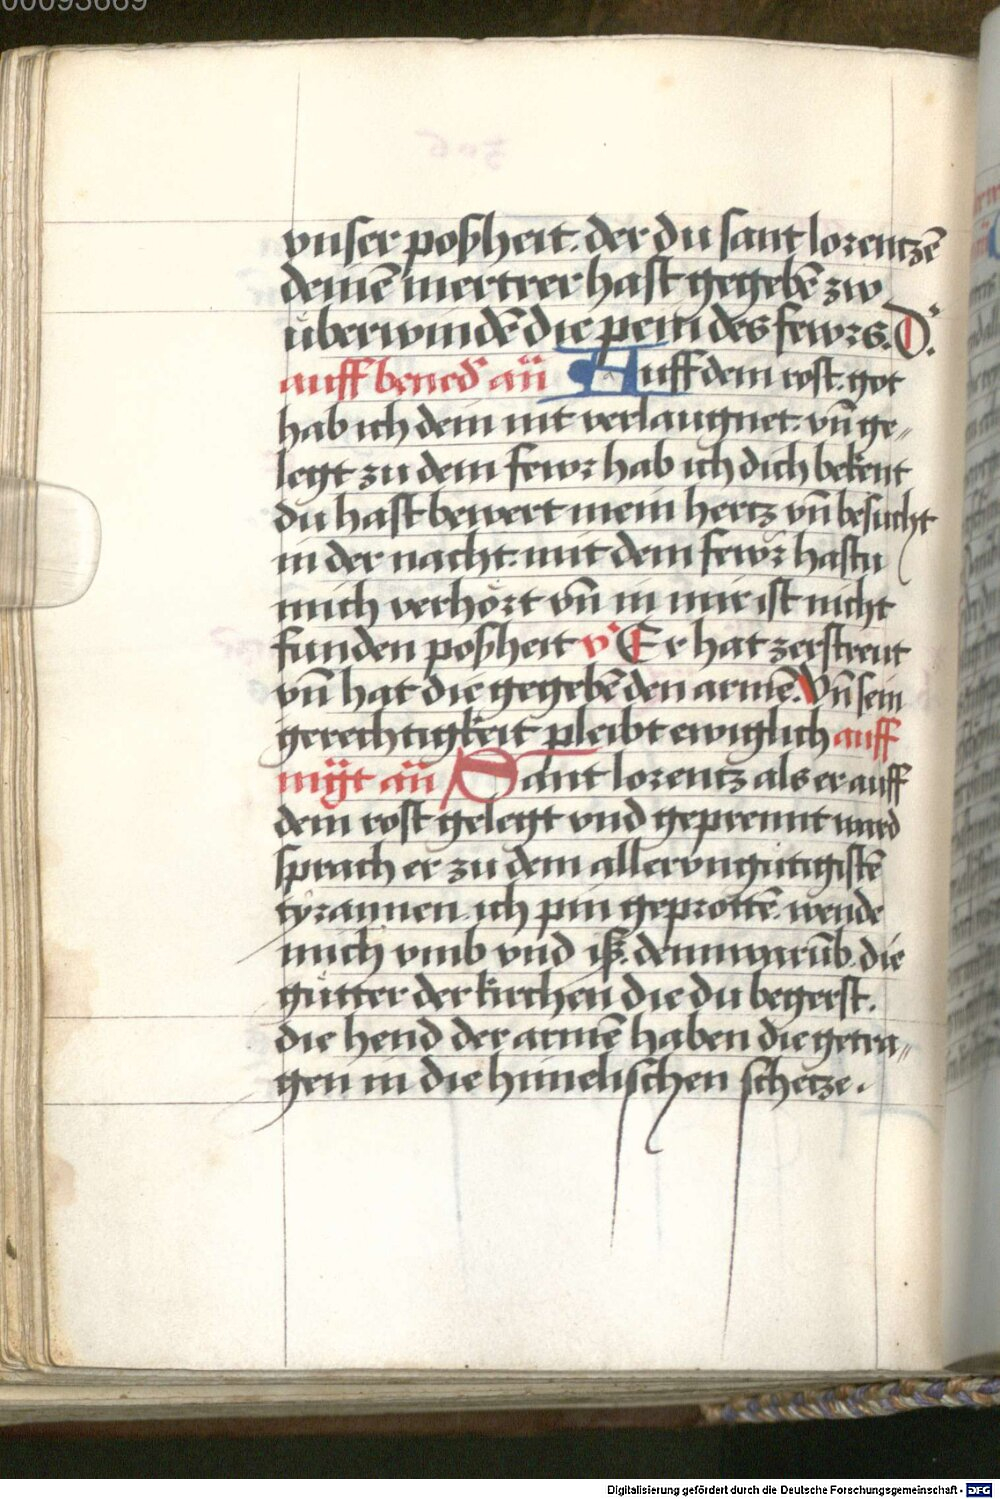 00093669
vnser poßheit. der du sant lorenczē
deinē mertrer hast gegebē zw
überwindē die pein des fewrs. D'.
auff bened' an̄ Auff dem rost. got
hab ich dem nit verlaugnet. vn̄ ge„
legt zu dem fewr hab ich dich bekent
du hast bewert mein hertz vn̄ besucht
in der nacht. mit dem fewr hastu
mich verhört vn̄ in mir ist nicht
funden poßheit v' Er hat zerstreut
vn̄ hat die gegebē den armē. Vn̄ sein
gerechtigkeit pleibt ewiglich auff
mgt an̄ Sant lorentz als er auff
dem rost gelegt vnd geprennt ward
sprach er zu dem allervngutigistē
tyrannen. ich pin geprottē. wende
mich vmb vnd iß. dennwarūb. die
gütter der kirchen die du begerst.
die hend der armē haben die getra„
gen in die himelischen schetze.
Digitalisierung gefördert durch die Deutsche Forschungsgemeinschaft - DFG